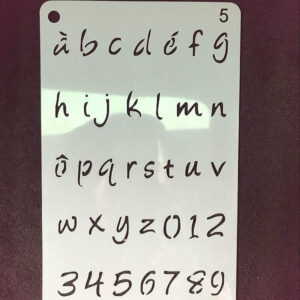 5
à b c d é f g
h i j k l m n
ô p q r s t u v
w x y z 0 1 2
3 4 5 6 7 8 9